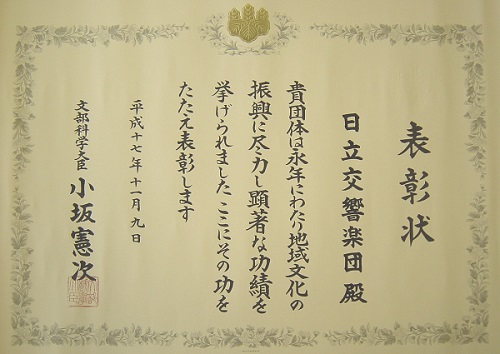 表彰状
日立交響楽団殿
貴団体は永年にわたり地域文化の
振興に尽力し顕著な功績を
挙げられました ここにその功を
たたえ表彰します
平成十七年十一月九日
文部科学大臣 小坂憲次